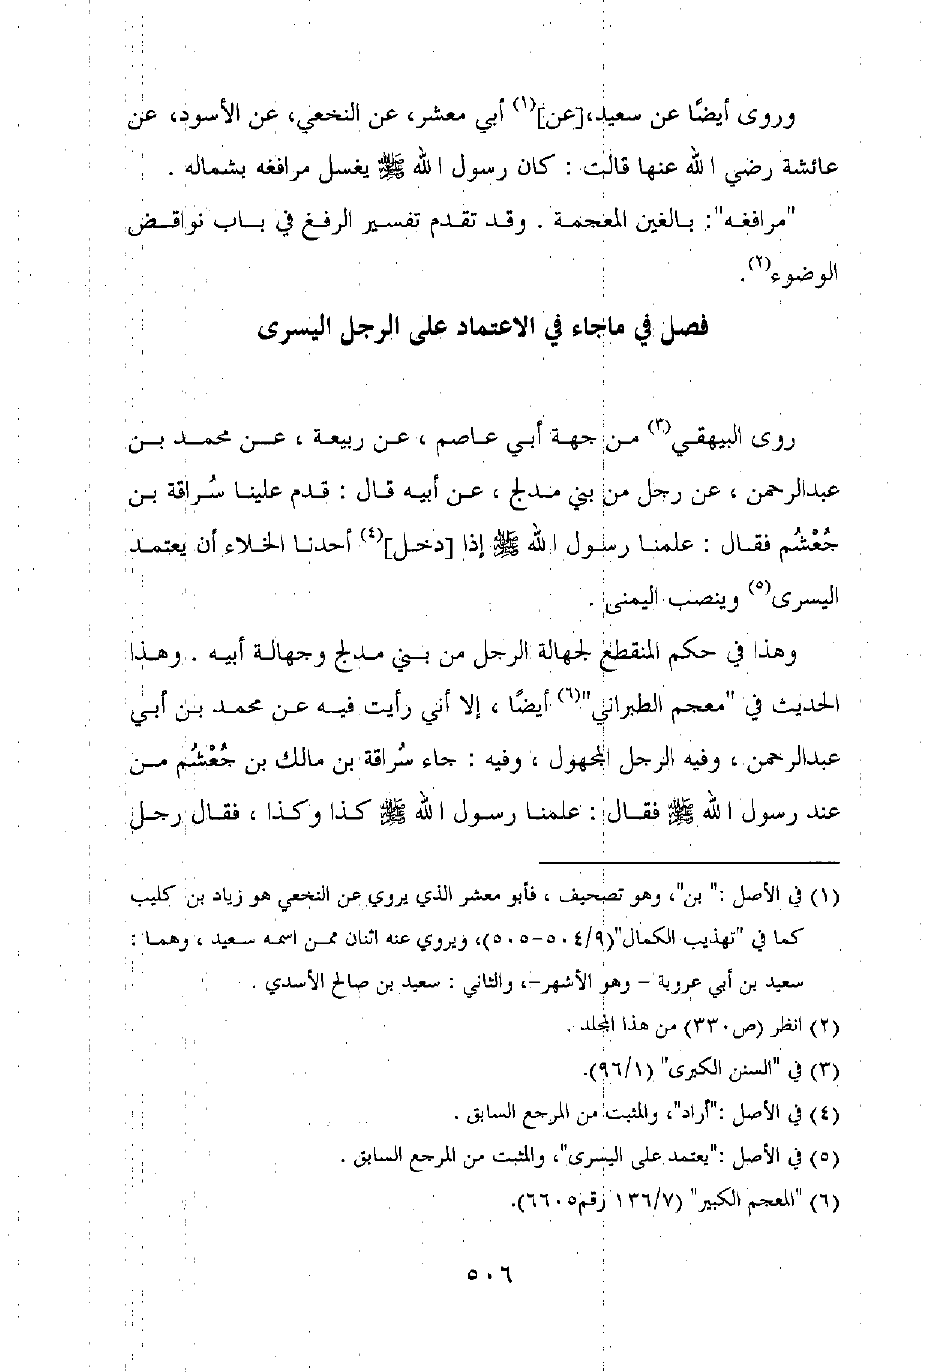 وروى أيضًا عن سعيد،[عن](١) أبي معشر، عن النخعي، عن الأسود، عن
عائشة رضي الله عنها قالت : كان رسول الله ﷺ يغسل مرافغه بشماله .
"مرافغه": بالغين المعجمة . وقد تقدم تفسير الرفغ في باب نواقض
الوضوء(٢).
فصل في ماجاء في الاعتماد على الرجل اليسرى
روى البيهقي(٣) من جهة أبي عاصم ، عن ربيعة ، عن محمد بن
عبدالرحمن ، عن رجل من بني مدلج ، عن أبيه قال : قدم علينا سُراقة بن
جُعْشُم فقال : علمنا رسول الله ﷺ إذا [دخل](٤) أحدنا الخلاء أن يعتمد
اليسرى(٥) وينصب اليمنى .
وهذا في حكم المنقطع لجهالة الرجل من بني مدلج وجهالة أبيه . وهذا
الحديث في "معجم الطبراني"(٦) أيضًا ، إلا أني رأيت فيه عن محمد بن أبي
عبدالرحمن ، وفيه الرجل المجهول ، وفيه : جاء سُراقة بن مالك بن جُعْشُم من
عند رسول الله ﷺ فقال : علمنا رسول الله ﷺ كذا وكذا ، فقال رجل
(١) في الأصل :" بن"، وهو تصحيف ، فأبو معشر الذي يروي عن النخعي هو زياد بن كليب
كما في "تهذيب الكمال"(٥٠٤/٩-٥٠٥)، ويروي عنه اثنان ممن اسمه سعيد ، وهما :
سعيد بن أبي عروبة - وهو الأشهر-، والثاني : سعيد بن صالح الأسدي .
(٢) انظر (ص٣٣٠) من هذا المجلد .
(٣) في "السنن الكبرى" (٩٦/١).
(٤) في الأصل :"أراد"، والمثبت من المرجع السابق .
(٥) في الأصل :"يعتمد على اليسرى"، والمثبت من المرجع السابق .
(٦) "المعجم الكبير" (١٣٦/٧ رقم٦٦٠٥).
٥٠٦